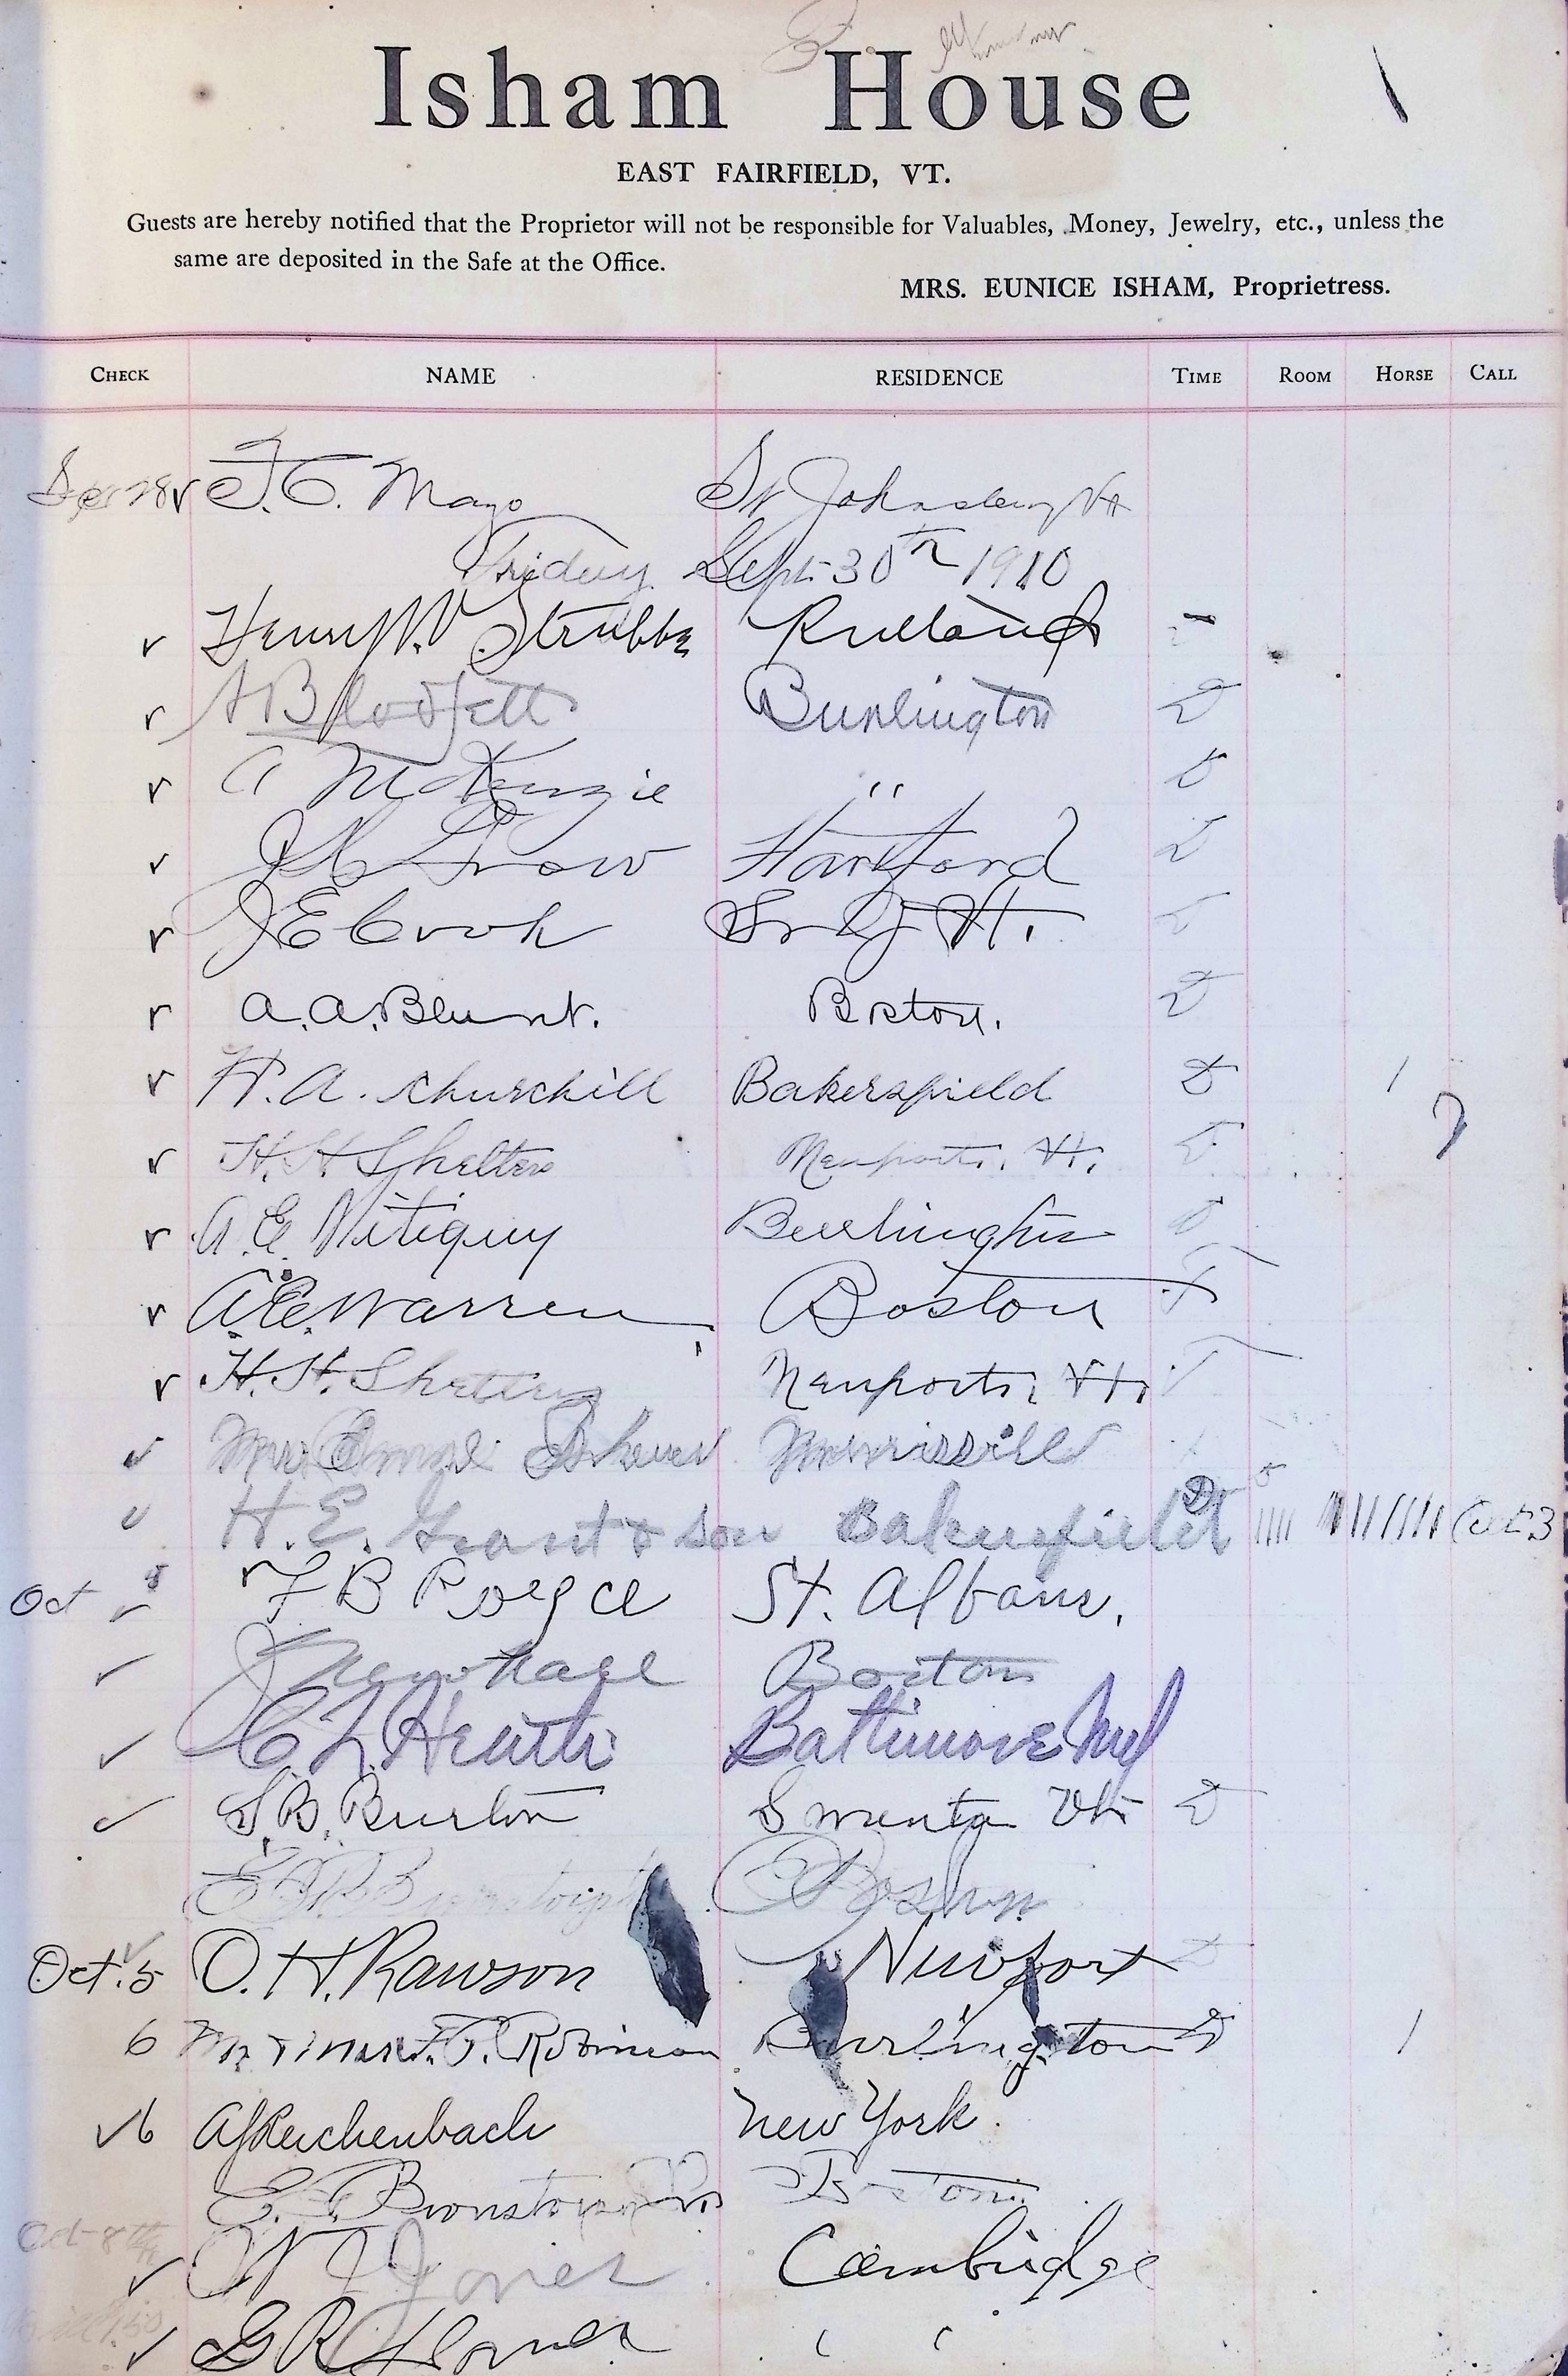 Isham House
EAST FAIRFIELD, VT.
Guests are hereby notified that the Proprietor will not be responsible for Valuables, Money, Jewelry, etc., unless the
same are deposited in the Safe at the Office.
MRS. EUNICE ISHAM, Proprietress.
CHECK NAME RESIDENCE TIME ROOM HORSE CALL
Mayo St Johnsbury Vt
Friday Sept 30th 1910
Henry W. Stubbs Rutland
A Blodgett Burlington D
A McKenzie " D
Grow Hartford D
J E Cook St J Vt. D
A. A. Blunt. Boston. D
A. Churchill Bakersfield D 1
H. H. Shelters Newport, Vt. D
A. E. Nitiquy Burlington D
A. E. Warren Boston
H. H. Newport, Vt.
Mrs Morrisville
H. E. Grant & son Bakersfield D Oct 3
Oct F B St. Albans.
Newhall Boston
C L Heath Baltimore Md
S. B. Burton Swanton Vt D
Boston
Oct. 5 O. H. Rawson Newport
6 Mr & Mrs F. T. Robinson Burlington D 1
6 A J Reichenbach New York.
E. Boston
Oct 8th W J Jones Cambridge
G R " "